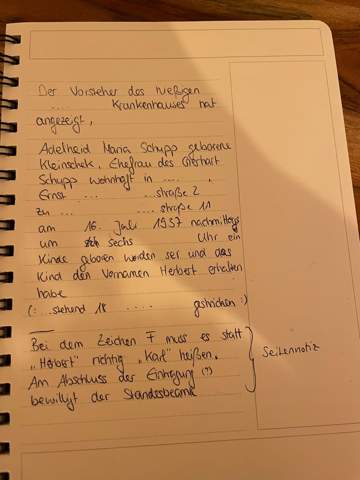 Der Vorsteher des hießigen
.... Krankenhauses hat
angezeigt,
Adelheid Maria Schupp geborene
Kleinschek, Ehefrau des
Schupp wohnhaft in .....
Ernst ... ...straße 2
zu ... ....straße 11
am 16. Juli 1937 nachmittags
um sechs Uhr ein
Kinde geboren worden sei und das
Kind den Vornamen Herbert erhalten
habe
(: ...stehend 18 .... gestrichen :)
Bei dem Zeichen F muss es statt
"Herbert" richtig "Karl" heißen.
Am Abschluss der Eintragung (?)
bewilligt der Standesbeamte
Seitennotiz